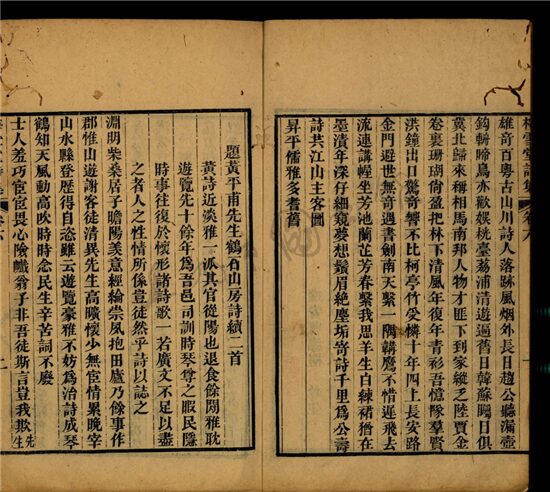 雄奇百粵古山川詩人落跡風烟外長日趙公聽漏壺
鈎輈啼鳥亦歡娱桄臺荔浦清遊遍舊日韓蘇屬日俱
冀北歸來稱相馬南邦人物才匪下到家縱乏陸賈金
卷裏珊瑚尚盈把林下清風年復年青衫吾憶隊羣賢
洪鐘出日驚奇響不比柯亭竹受憐十年四上長安路
金門避世無奇遇書劍南天繫一隅鞲鷹不惜遲飛去
流連講幄坐芳池蘭芷芳春繫我思羊生白練裙猶在
墨漬年深仔細窺夢想鬚眉絶塵垢寄詩千里爲公壽
詩共江山主客圖
昇平儒雅多耆舊
題黃平甫先生鶴石山房詩續二首
黃詩近淡雅一派其官從陽也退食餘閒雅耽
遊覽先十餘年爲吾邑司訓時琴尊之暇民隱
時事往復於懷形諸詩歌一若廣文不足以盡
之者人之性情所係豈徒然乎詩以誌之
淵明柴桑居子瞻陽羨意經綸崇夙抱田廬乃餘事作
郡惟山遊謝客徒清異先生高曠懷少無宦情累晚宰
山水縣登歷得自恣雖云遊覽豪雅不妨爲治詩成琴
鶴知天風動高吹時時念民生辛苦詞不廢
士人羞巧宦宦畏心險巇翁子非吾徒斯言豈我欺先生